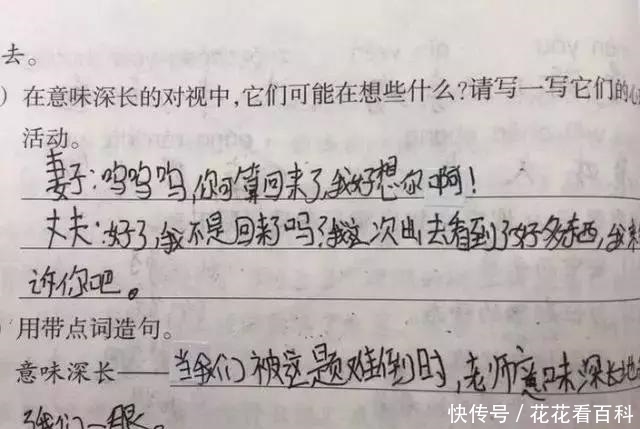 去。
) 在意味深长的对视中,它们可能在想些什么?请写一写它们的心
活动。
妻子:呜呜呜,你可算回来了,我好想你啊!
丈夫:好了,我不是回来了吗?我这次出去看到了好多东西,我来
诉你吧。
) 用带点词造句。
意味深长——当我们被这题难倒时,老师意味深长地
了我们一眼。
快传号 / 花花看百科